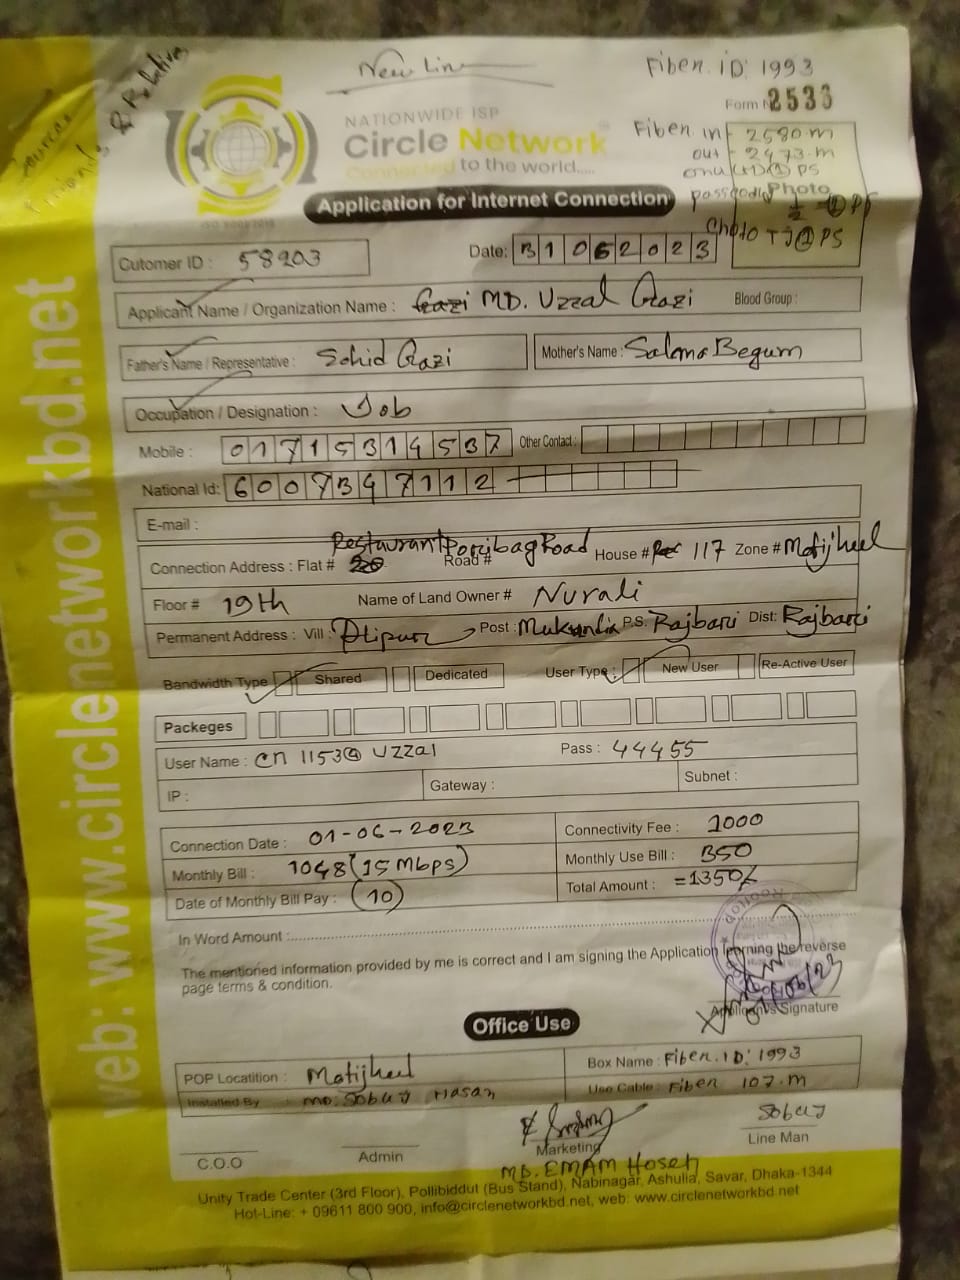 New Line
Fiber. iD: 1993
Form No 2533
Sources
Friends, & Relatives
NATIONWIDE ISP
Circle Network
Connected to the world.....
Fiber in - 2580 m
out - 2473 m
onu (+1) (1) PS
Photo
TJ (2) PS
Application for Internet Connection
Cutomer ID : 58903
Date: 31 06 2023
Applicant Name / Organization Name : Gazi MD. Uzzal Gazi Blood Group :
Father's Name / Representative : Sohid Gazi Mother's Name : Salema Begum
Occupation / Designation : Job
Mobile : 01715314537 Other Contact :
National Id: 6007347112
E-mail :
Connection Address : Flat # Restaurant Road # Poribag Road House # 117 Zone # Motijheel
Floor # 19th Name of Land Owner # Nurali
Permanent Address : Vill : Alipur Post : P.S. Rajbari Dist: Rajbari
Bandwidth Type Shared Dedicated User Type : New User Re-Active User
Packeges
User Name : cn 1153@ uzzal Pass : 44455
IP : Gateway : Subnet :
Connection Date : 01-06-2023 Connectivity Fee : 1000
Monthly Bill : 1048 (15 Mbps) Monthly Use Bill : 350
Date of Monthly Bill Pay : (10) Total Amount : =1350/
In Word Amount :
The mentioned information provided by me is correct and I am signing the Application lerning the reverse
page terms & condition.
Applicant's Signature
Office Use
POP Locatition : Motijheel Box Name : Fiber. ID: 1993
Installed By : MD. Sobuj Hasan Use Cable : Fiber 107.m
Sobuj
C.O.O Admin Marketing Line Man
MD. EMAM Hosen
Unity Trade Center (3rd Floor), Pollibiddut (Bus Stand), Nabinagar, Ashulia, Savar, Dhaka-1344
Hot-Line: + 09611 800 900, info@circlenetworkbd.net, web: www.circlenetworkbd.net
web: www.circlenetworkbd.net